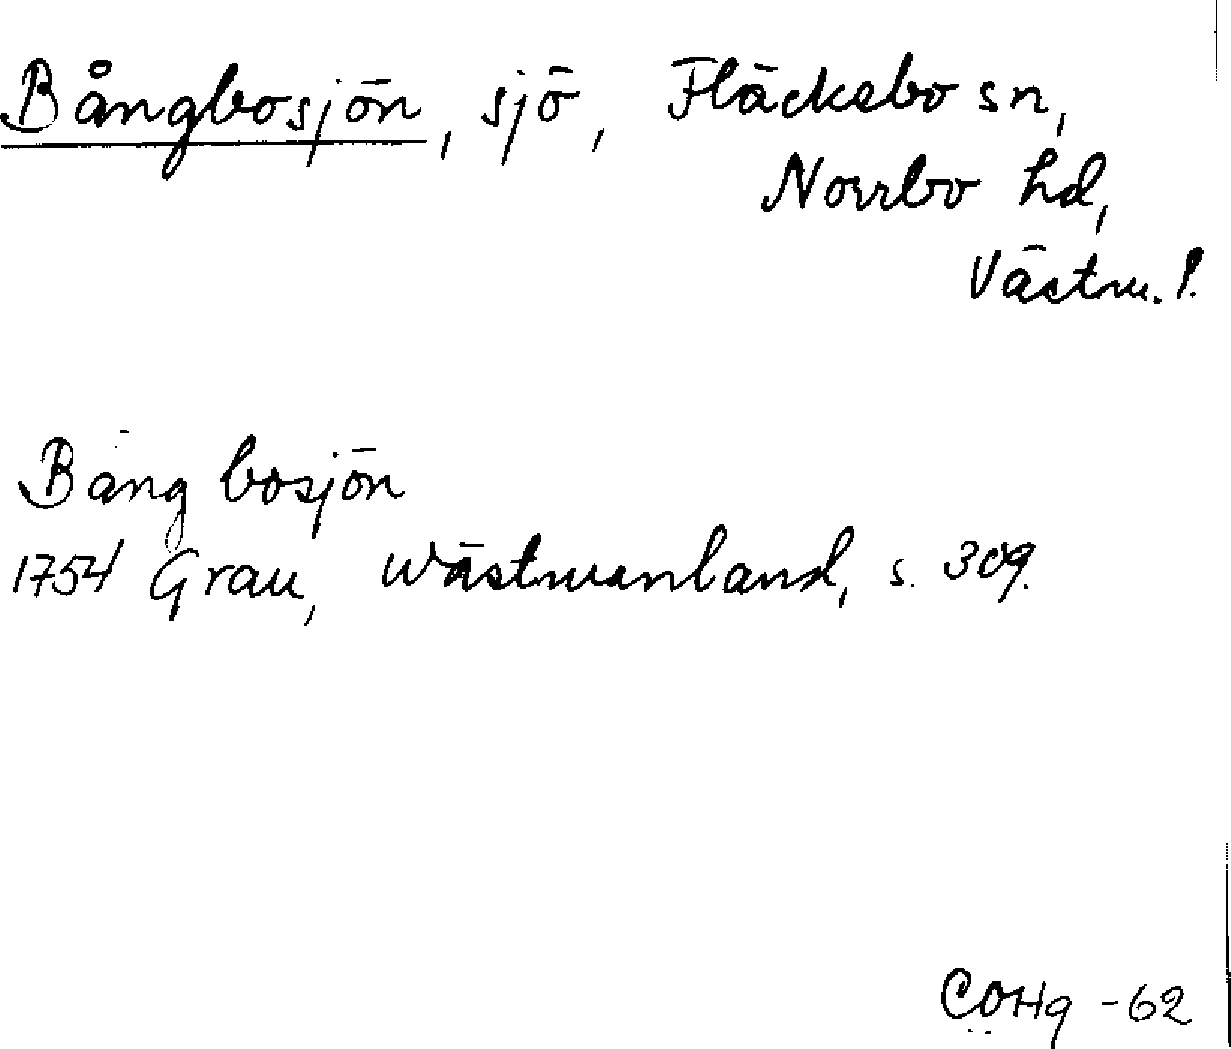 Bångbosjön, sjö, Fläckebo sn,
Norrbo hd,
Västm. l.
Bång bosjön
1754 Grau, Wästmanland, s. 309.
CÖHg -62